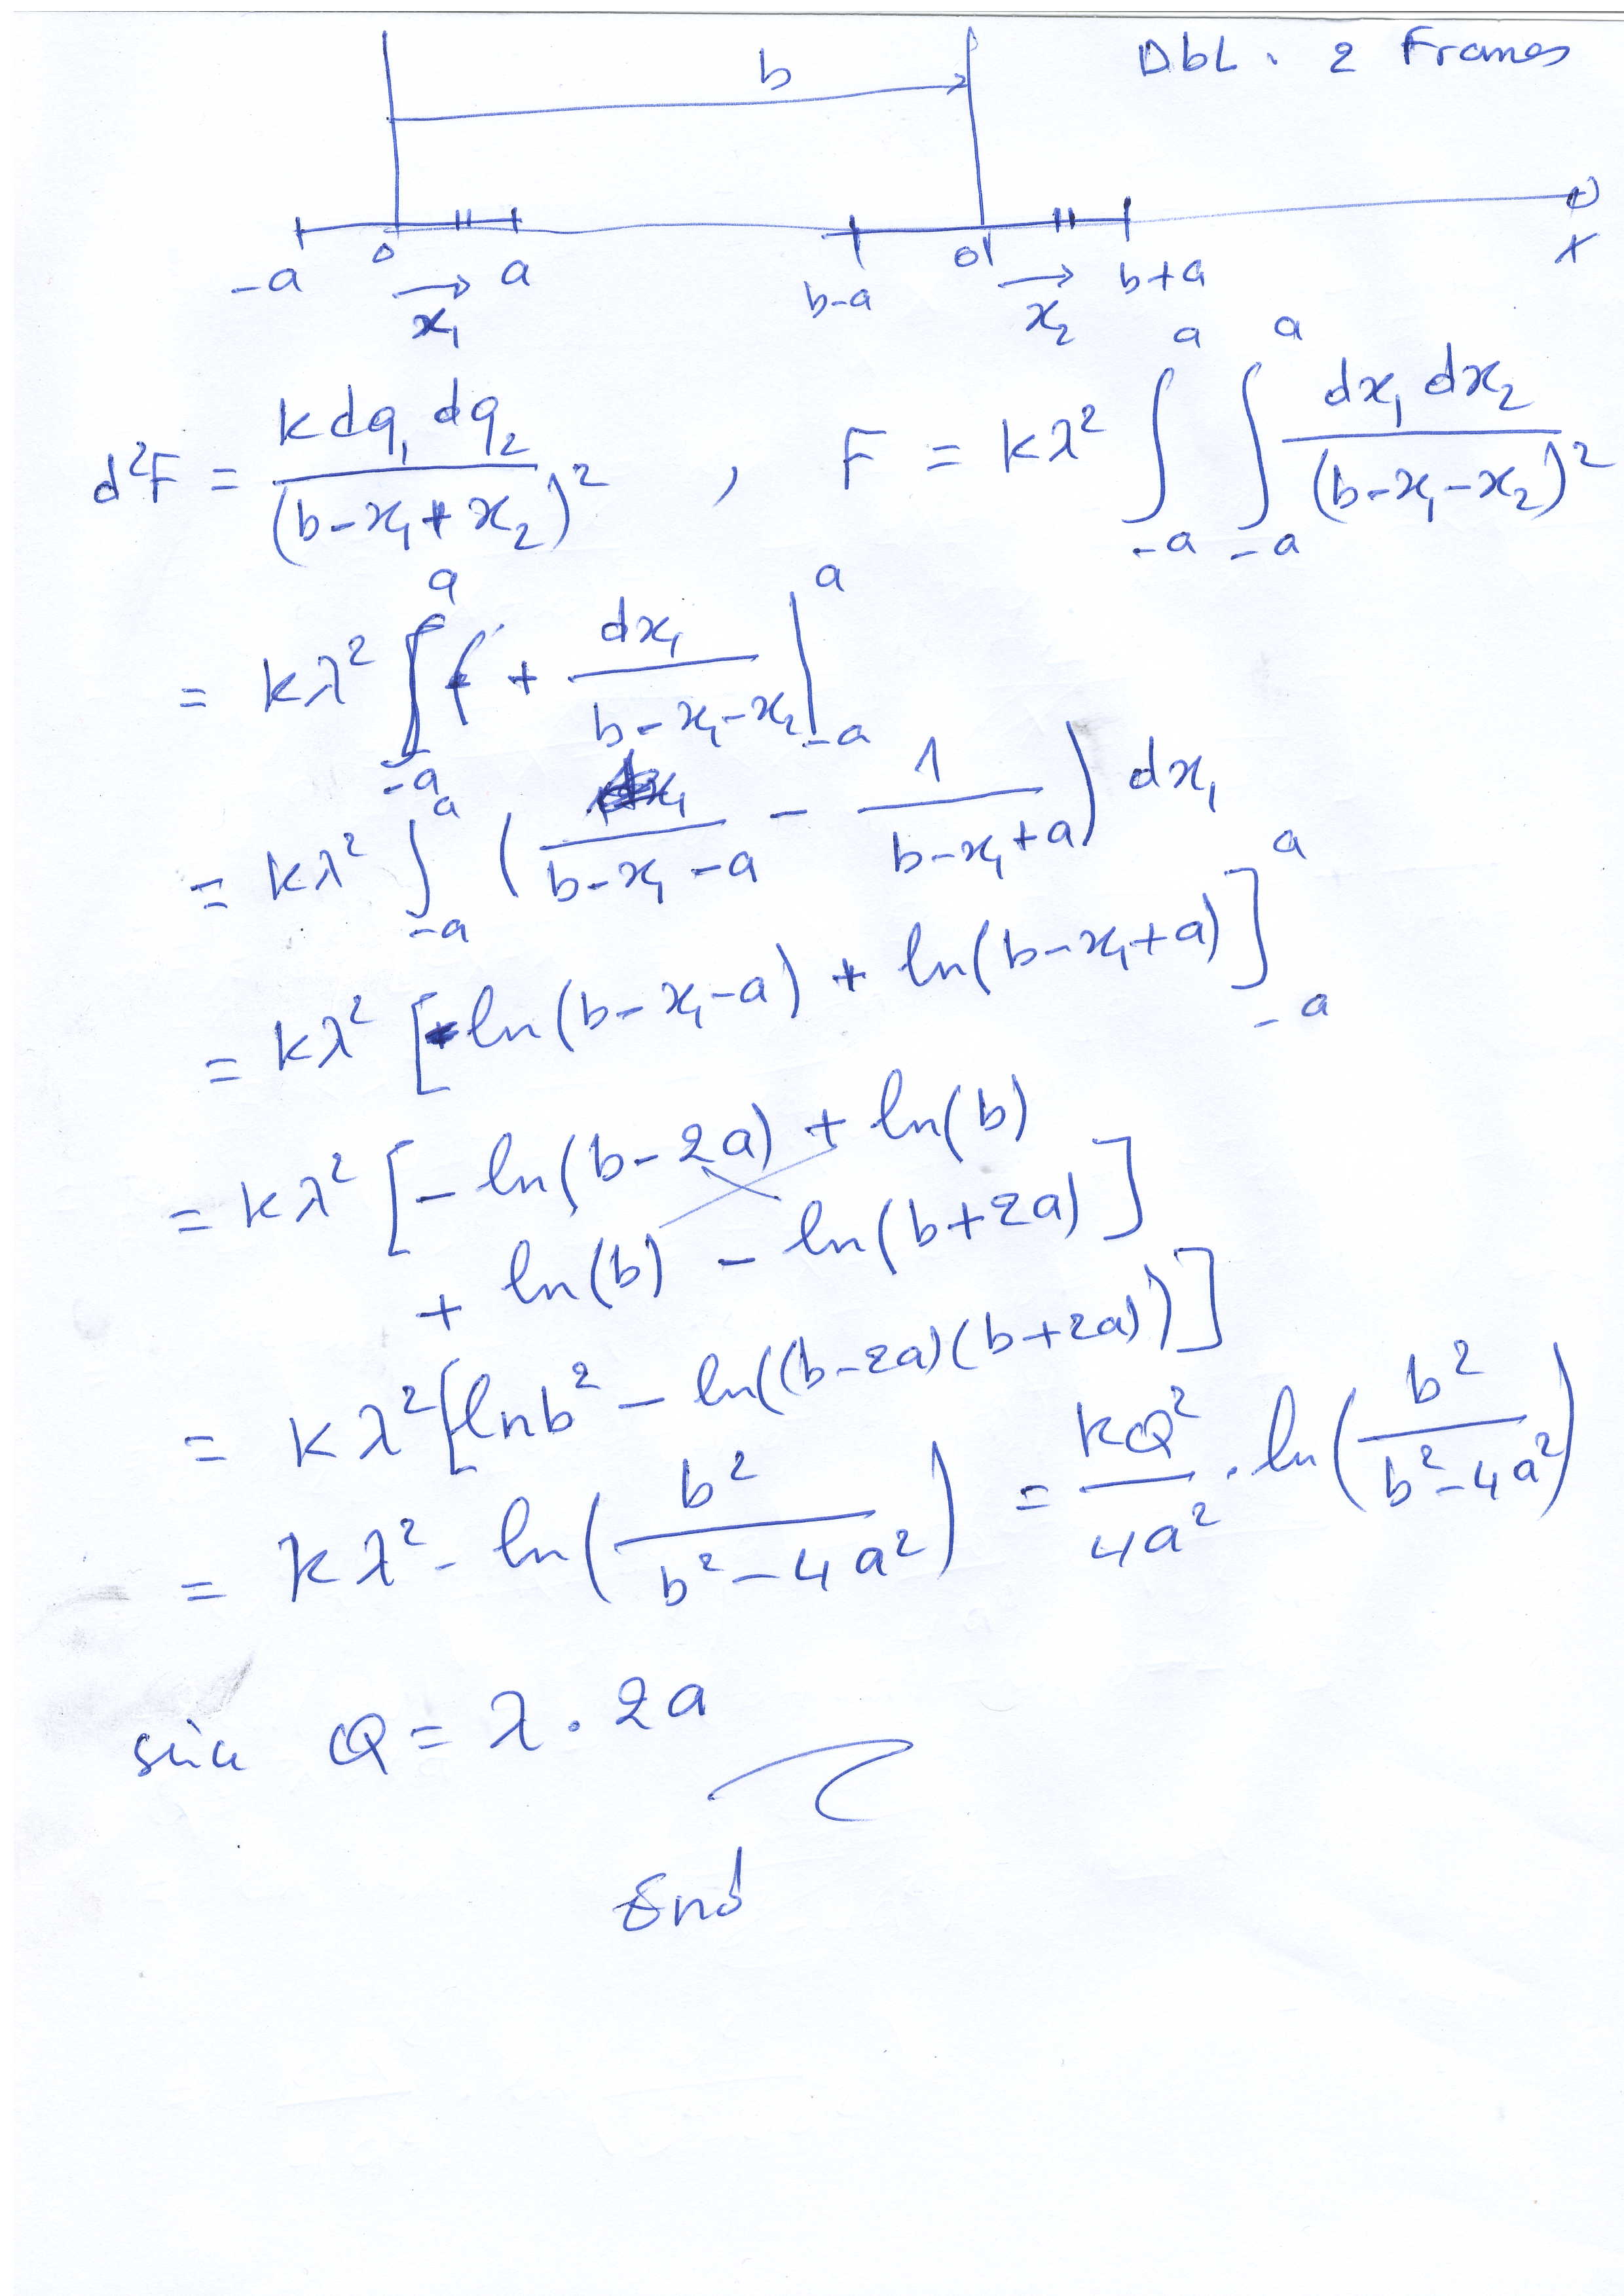 DbL. 2 Frames
b
-a 0 a b-a 0' b+a x
x₁ x₂
d²F = k dq₁ dq₂ / (b-x₁+x₂)² , F = kλ² ∫_{-a}^{a} ∫_{-a}^{a} dx₁ dx₂ / (b-x₁-x₂)²
= kλ² ∫_{-a}^{a} + dx₁ / (b-x₁-x₂) |_{-a}^{a}
= kλ² ∫_{-a}^{a} ( / (b-x₁-a) - 1 / (b-x₁+a) ) dx₁
= kλ² [-ln(b-x₁-a) + ln(b-x₁+a)]_{-a}^{a}
= kλ² [- ln(b-2a) + ln(b)
+ ln(b) - ln(b+2a)]
= kλ² [lnb² - ln((b-2a)(b+2a))]
= kλ² - ln(b² / (b²-4a²)) = kQ² / 4a² . ln(b² / (b²-4a²))
Q = λ . 2a
End